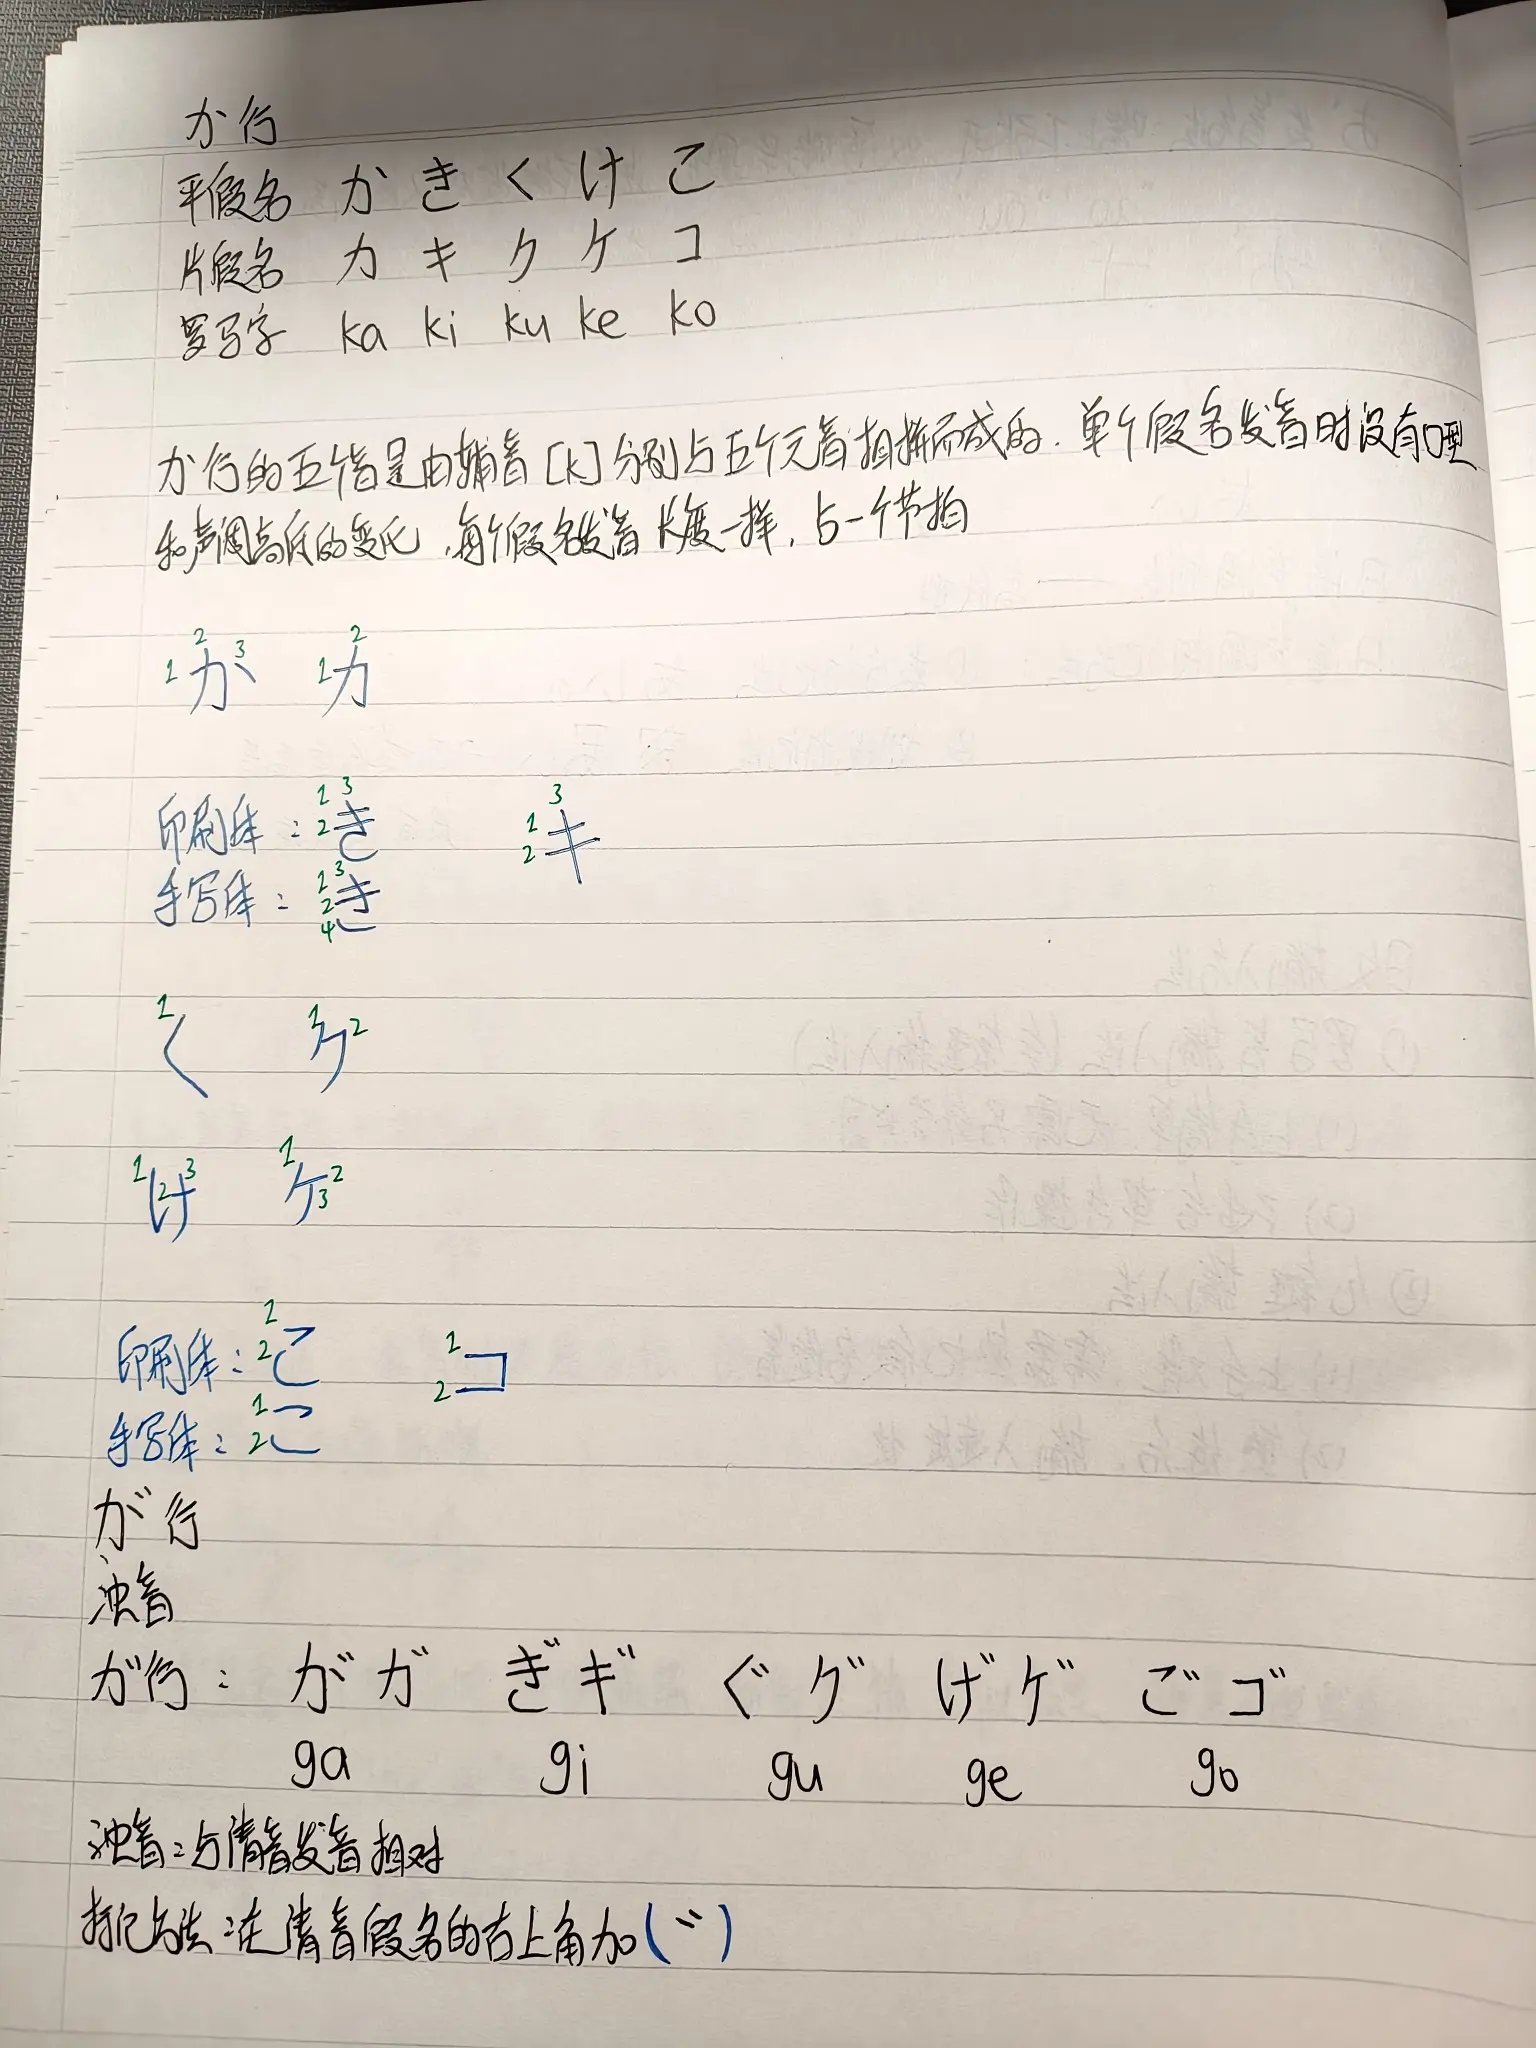 か行
平假名 か き く け こ
片假名 カ キ ク ケ コ
罗马字 ka ki ku ke ko
か行的五个音是由辅音[k]分别与五个元音相拼而成的.单个假名发音时没有口型
和声调高低的变化,每个假名发音长度一样,占一个节拍
1 2 3 か 1 2 カ
印刷体: 1 2 3 き 1 2 3 キ
手写体: 1 2 3 4 き
1 く 1 2 ク
1 2 3 け 1 2 3 ケ
印刷体: 1 2 こ 1 2 コ
手写体: 1 2 こ
が行
浊音
が行: がガ ぎギ ぐグ げゲ ごゴ
ga gi gu ge go
浊音:与清音发音相对
标记方法:在清音假名的右上角加(゛)